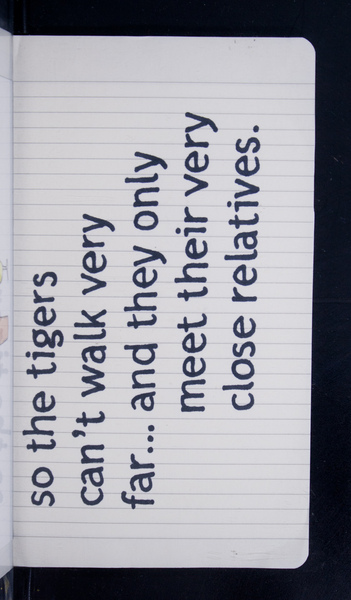 so the tigers
can't walk very
far... and they only
meet their very
close relatives.